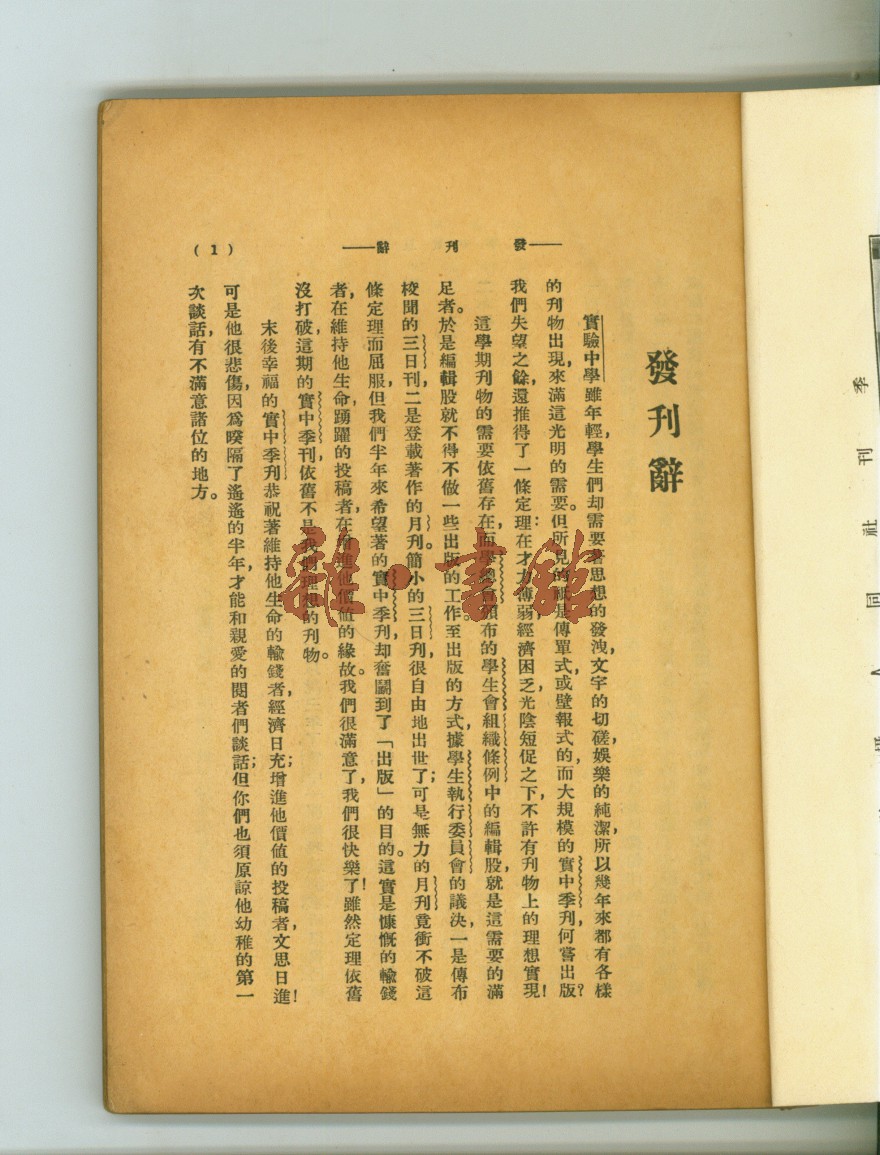 季刊社同人
——發刊辭——
(1)
發刊辭
實驗中學雖年輕,學生們却需要著思想的發洩,文字的切磋,娛樂的純潔,所以幾年來都有各樣
的刊物出現,來滿這光明的需要。但所見的祇是傳單式,或壁報式的,而大規模的實中季刊,何嘗出版?
我們失望之餘,還推得了一條定理:在才力薄弱,經濟困乏,光陰短促之下,不許有刊物上的理想實現!
這學期刊物的需要依舊存在,而學總會頒布的學生會組織條例中的編輯股,就是這需要的滿
足者。於是編輯股就不得不做一些出版的工作。至出版的方式,據學生執行委員會的議決,一是傳布
校聞的三日刊,二是登載著作的月刊。簡小的三日刊,很自由地出世了;可是無力的月刊竟衝不破這
條定理而屈服,但我們半年來希望著的實中季刊,却奮鬭到了「出版」的目的。這實是慷慨的輸錢
者,在維持他生命,踴躍的投稿者,在增進他價值的緣故。我們很滿意了,我們很快樂了!雖然定理依舊
沒打破,這期的實中季刊依舊不是我們理想的刊物。
末後幸福的實中季刋恭祝著維持他生命的輸錢者,經濟日充;增進他價值的投稿者,文思日進!
可是他很悲傷,因爲暌隔了遙遙的半年,才能和親愛的閱者們談話;但你們也須原諒他幼稚的第一
次談話,有不滿意諸位的地方。
雜·書館